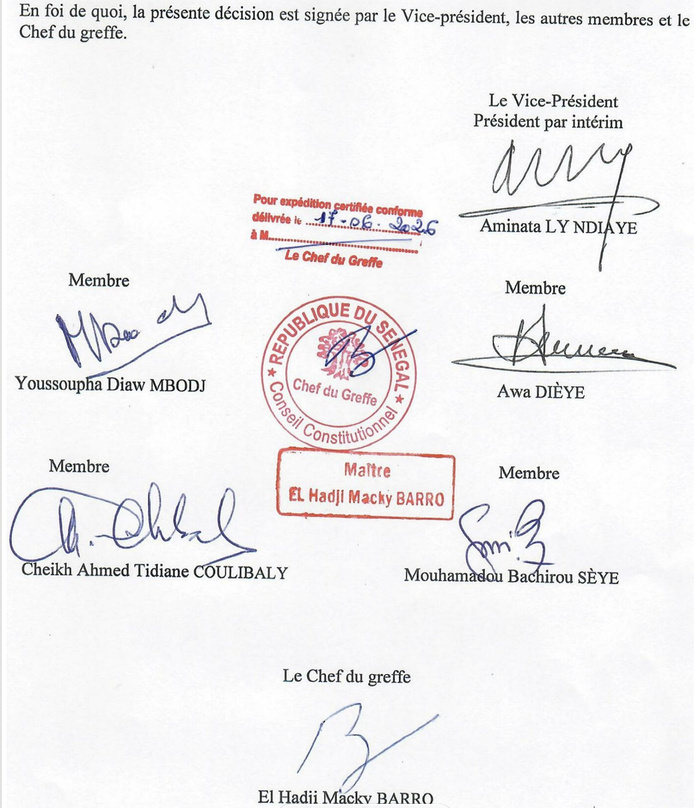 En foi de quoi, la présente décision est signée par le Vice-président, les autres membres et le
Chef du greffe.
Le Vice-Président
Président par intérim
Aminata LY NDIAYE
Pour expédition certifiée conforme
délivrée le 17-06-2026
à M
Le Chef du Greffe
Membre
Youssoupha Diaw MBODJ
Membre
Awa DIÈYE
REPUBLIQUE DU SENEGAL
Chef du Greffe
Conseil Constitutionnel
Maître
EL Hadji Macky BARRO
Membre
Cheikh Ahmed Tidiane COULIBALY
Membre
Mouhamadou Bachirou SÈYE
Le Chef du greffe
El Hadji Macky BARRO